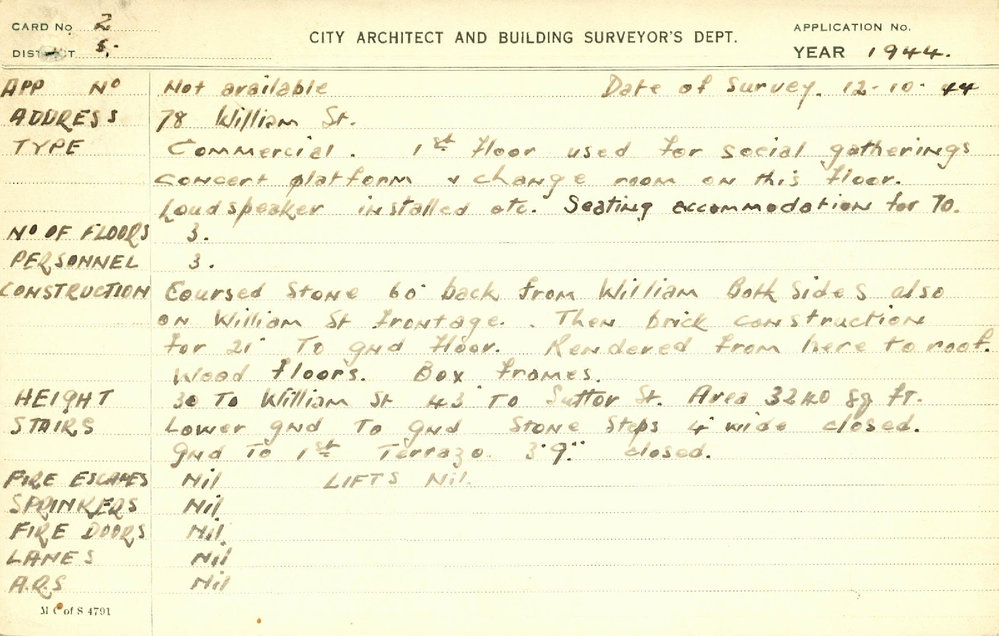 CARD No 2
DISTRICT 5.
CITY ARCHITECT AND BUILDING SURVEYOR'S DEPT.
APPLICATION No.
YEAR 1944.
APP No Not available Date of Survey. 12-10-44
ADDRESS 78 William St.
TYPE Commercial. 1st floor used for social gatherings
Concert platform & change room on this floor.
Loudspeaker installed etc. Seating accommodation for 70.
No OF FLOORS 3.
PERSONNEL 3.
CONSTRUCTION Coursed Stone 60' back from William Both Sides also
on William St frontage. Then brick construction
for 21' To gnd floor. Rendered from here to roof.
Wood floors. Box frames.
HEIGHT 30 To William St 43' To Suttor St. Area 3240 sq ft.
STAIRS Lower gnd To gnd Stone Steps 4' wide closed.
gnd To 1st Terrazo 3'9" closed.
FIRE ESCAPES Nil LIFTS Nil.
SPRINKERS Nil
FIRE DOORS Nil
LANES Nil
A.R.S Nil
M C of S 4791